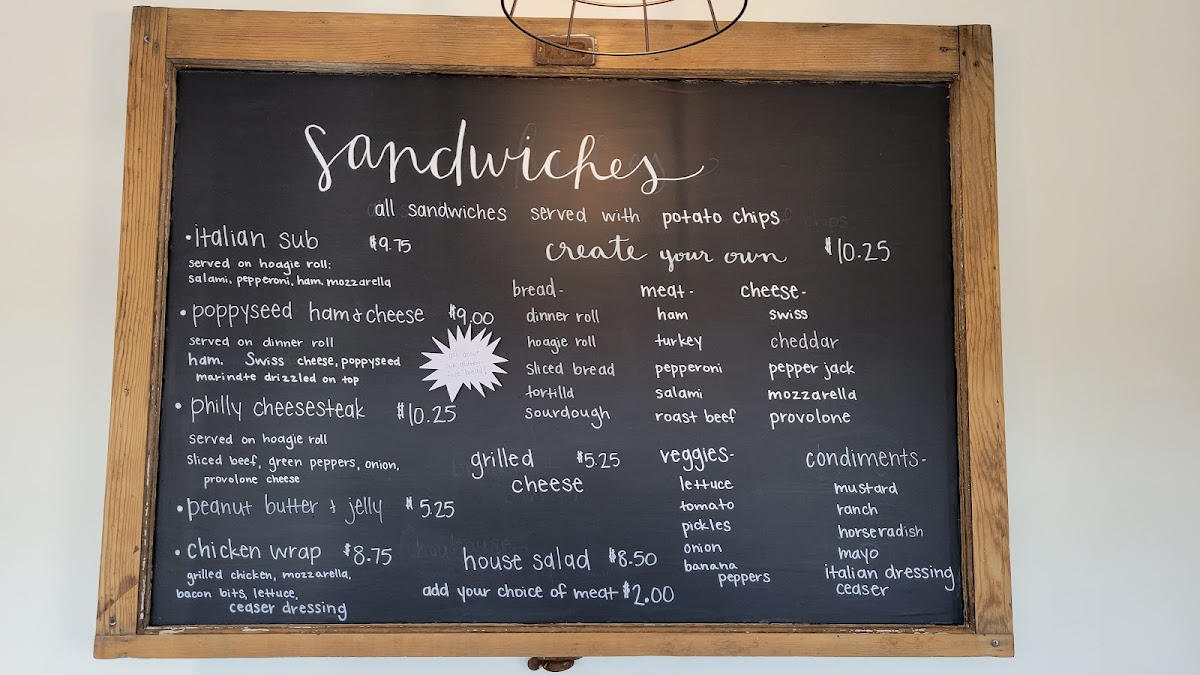 sandwiches
all sandwiches served with potato chips
• italian sub $9.75
served on hoagie roll:
salami, pepperoni, ham, mozzarella
• poppyseed ham & cheese $9.00
served on dinner roll
ham. Swiss cheese, poppyseed
marinate drizzled on top
• philly cheesesteak $10.25
Served on hoagie roll
Sliced beef, green peppers, onion,
provolone cheese
• peanut butter & jelly $5.25
• chicken wrap $8.75
grilled chicken, mozzarella,
bacon bits, lettuce,
ceaser dressing
ask about
our gluten
free bread!
create your own $10.25
bread-
dinner roll
hoagie roll
sliced bread
tortilla
sourdough
meat-
ham
turkey
pepperoni
salami
roast beef
cheese-
swiss
cheddar
pepper jack
mozzarella
provolone
grilled $5.25
cheese
veggies-
lettuce
tomato
pickles
onion
banana
peppers
condiments-
mustard
ranch
horseradish
mayo
italian dressing
ceaser
house salad $8.50
add your choice of meat $2.00